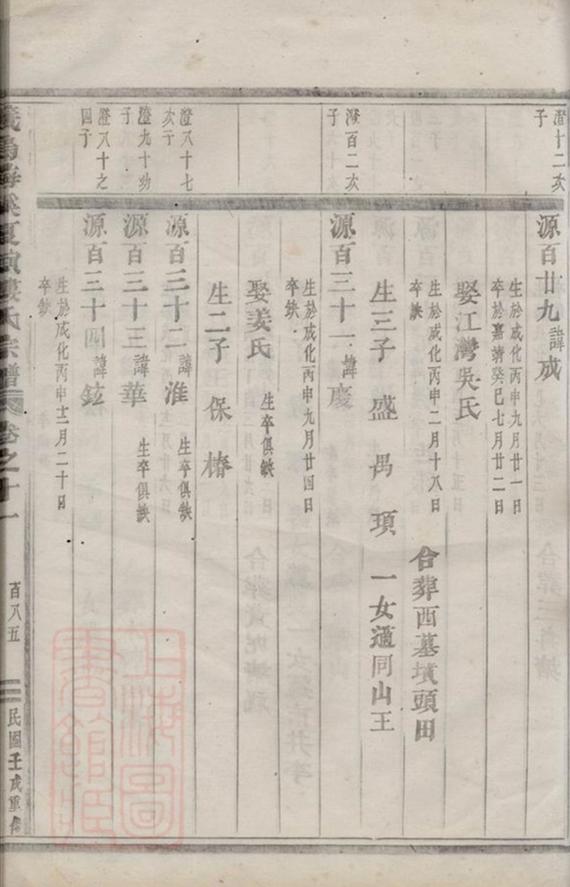 澄十二次子
源百廿九諱成
生於成化丙申九月廿一日
卒於嘉靖癸巳七月廿二日
娶江灣吳氏
生於成化丙申二月十八日
卒缺
合葬西墓墳頭田
生三子 盛 禺 頊 一女適同山王
澄百二次子
源百三十一諱慶
生於成化丙申九月廿四日
卒缺
娶姜氏 生卒俱缺
生二子 保 椿
澄八十七次子
源百三十二諱淮 生卒俱缺
澄九十幼子
源百三十三諱華 生卒俱缺
澄八十之四子
源百三十四諱鉉
生於成化丙申十二月二十日
卒缺
氏宗譜 卷之十一 百八五 民國壬戌重修
上海圖書館藏